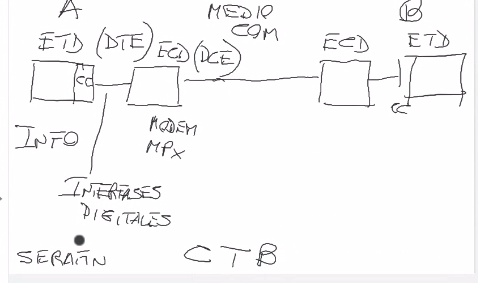 A
MEDIO
COM
B
ETD (DTE)
ECD (DCE)
ECD
ETD
CC
CC
INFO
MODEM
MPX
INTERFASES
DIGITALES
CTB